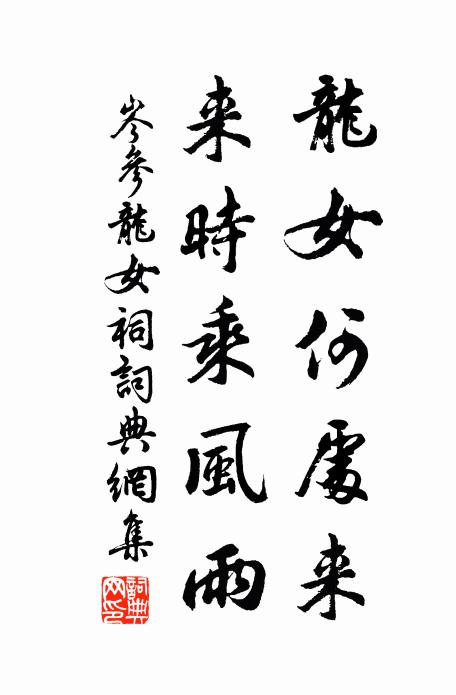 龍女何處来
来時乘風雨
岑參龍女祠詞典網集
詞典网印